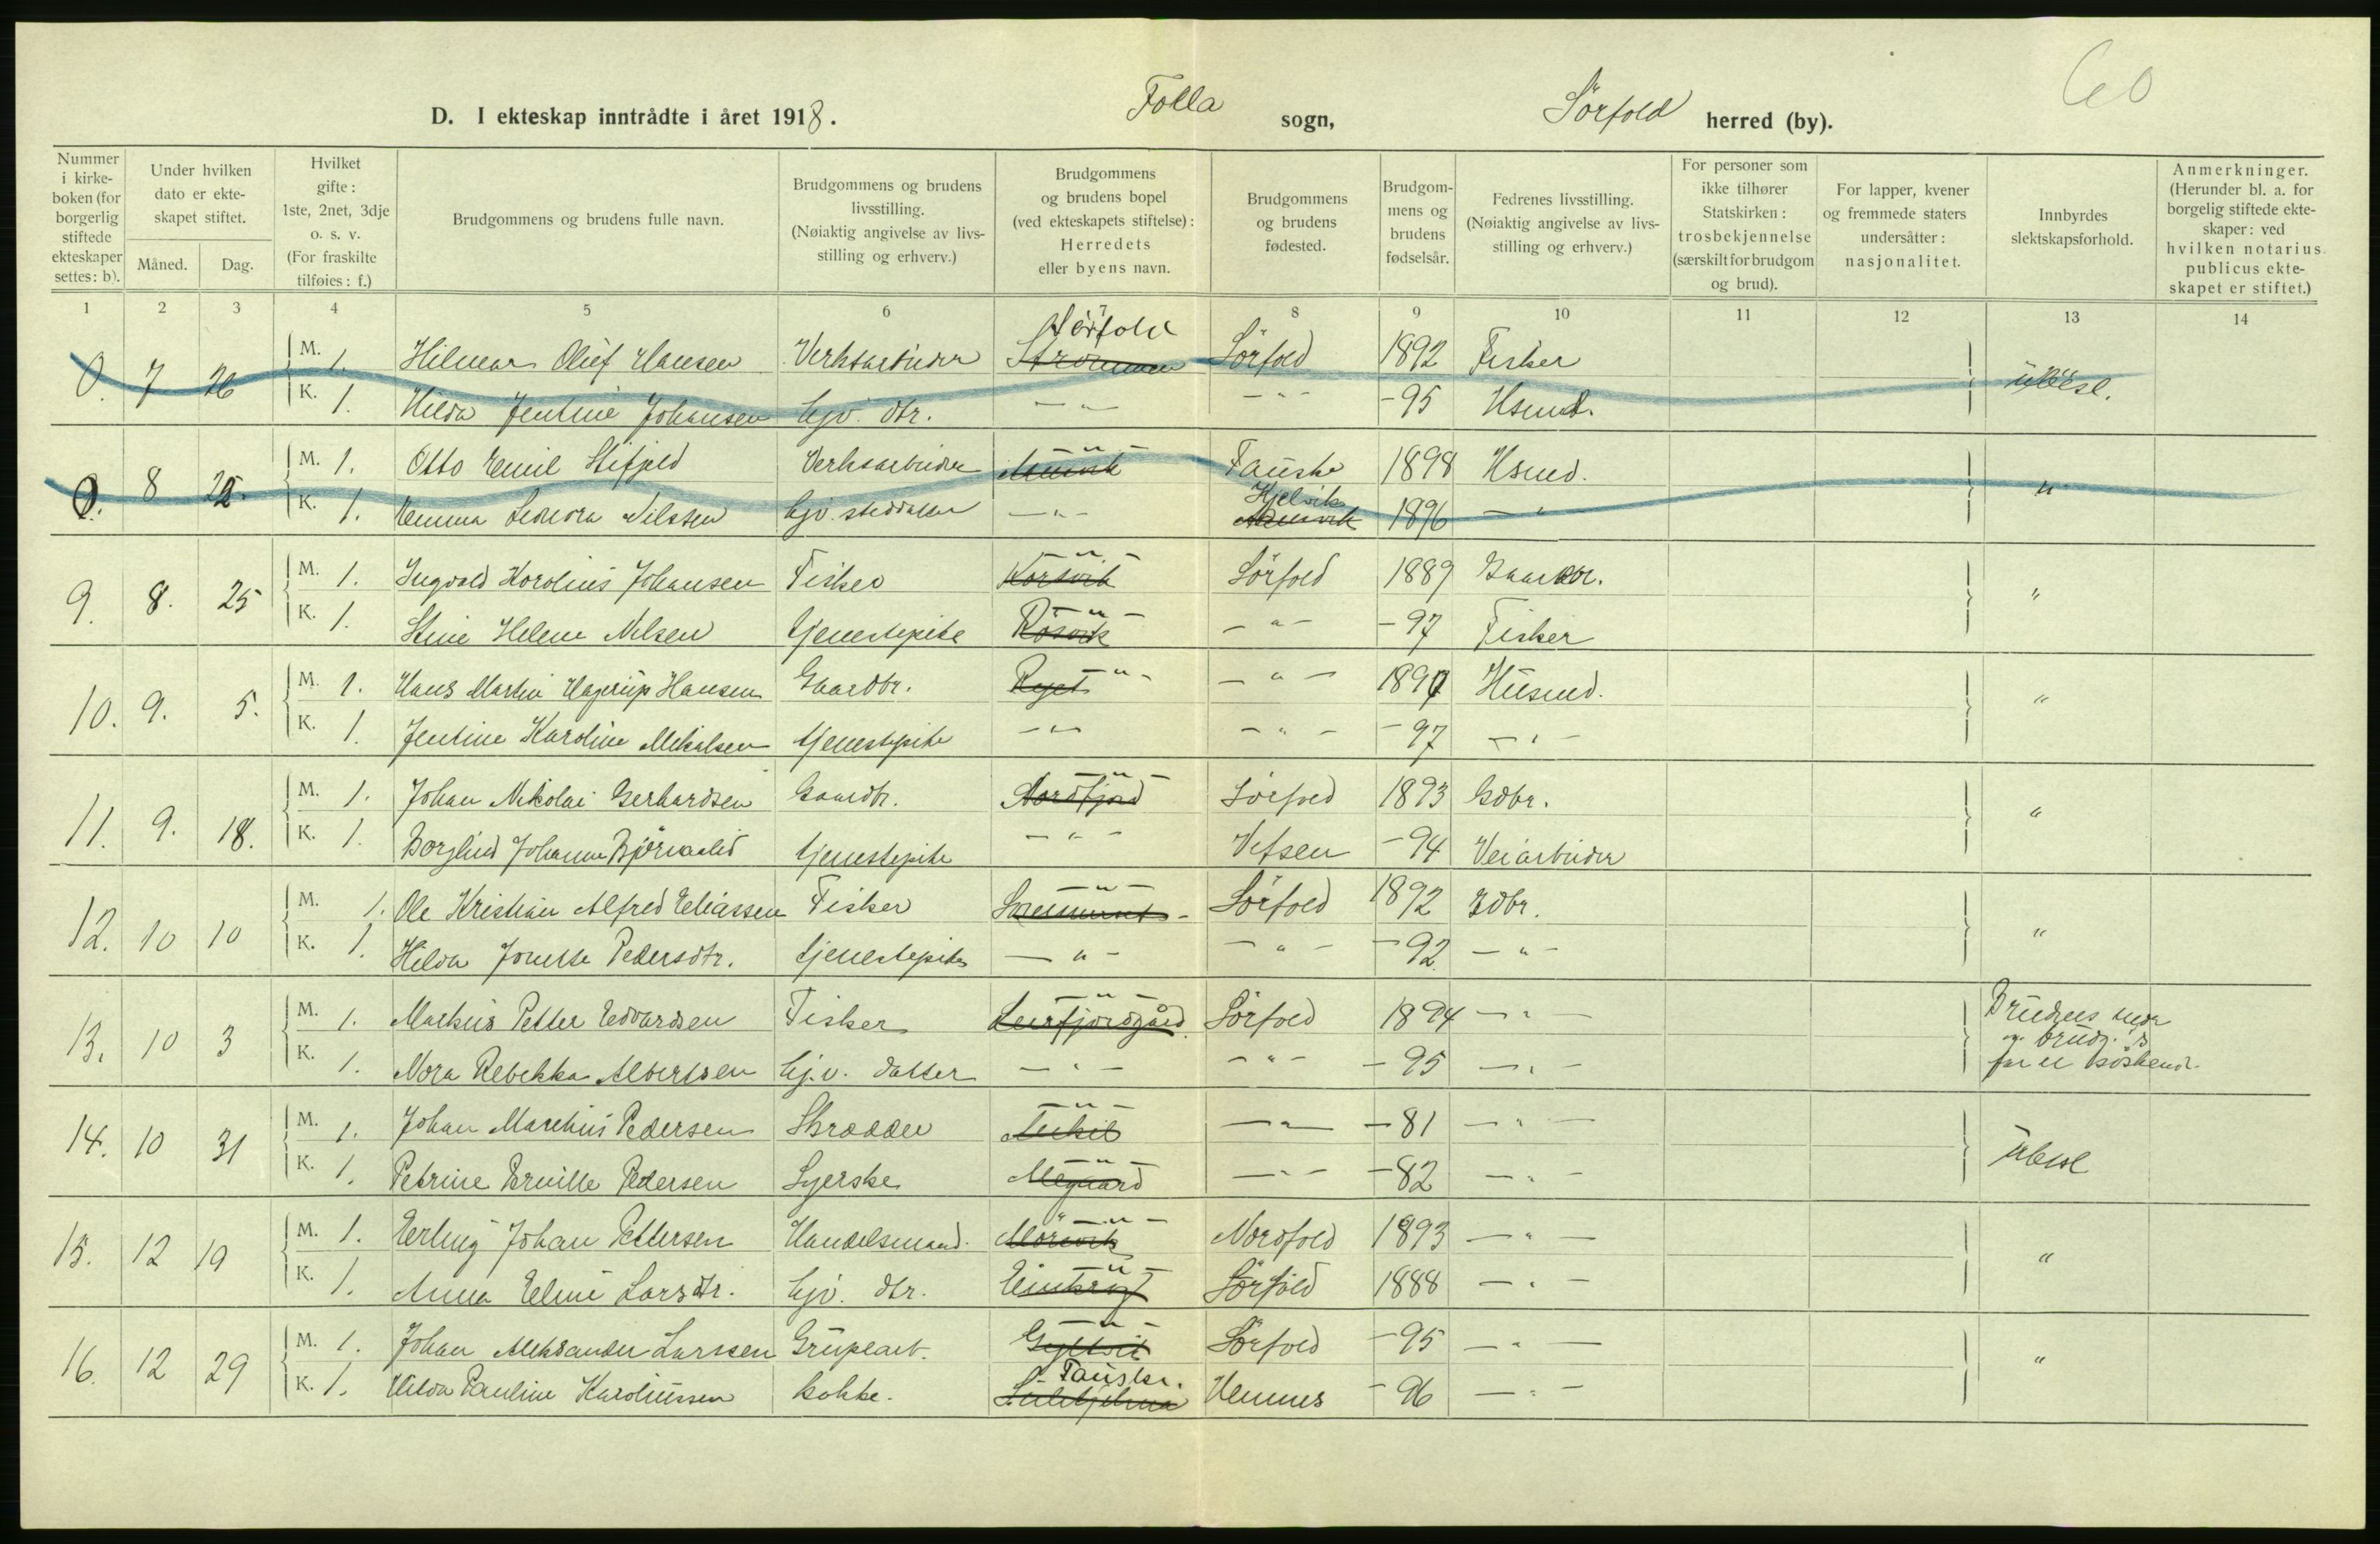 60
D. I ekteskap inntrådte i året 1918. Folla sogn, Sörfold herred (by).
Nummer i kirke-boken (for borgerlig stiftede ekteskaper settes: b).
Under hvilken dato er ekte-skapet stiftet.
Måned. Dag.
Hvilket gifte: 1ste, 2net, 3dje o. s. v. (For fraskilte tilføies: f.)
Brudgommens og brudens fulle navn.
Brudgommens og brudens livsstilling. (Nøiaktig angivelse av livs-stilling og erhverv.)
Brudgommens og brudens bopel (ved ekteskapets stiftelse): Herredets eller byens navn.
Brudgommens og brudens fødested.
Brudgom-mens og brudens fødselsår.
Fedrenes livsstilling. (Nøiaktig angivelse av livs-stilling og erhverv.)
For personer som ikke tilhører Statskirken: trosbekjennelse (særskilt for brudgom og brud).
For lapper, kvener og fremmede staters undersåtter: nasjonalitet.
Innbyrdes slektskapsforhold.
Anmerkninger. (Herunder bl. a. for borgelig stiftede ekte-skaper: ved hvilken notarius publicus ekte-skapet er stiftet.)
1 2 3 4 5 6 8 9 10 11 12 13 14
0. 7 26 M. 1. Hilmar Oluf Hansen Verksarbeider Sörfold Strømmen Sörfold 1892 Fisker ubesl.
K. 1. Hilda Jentine Johansen hjv. dtr. - " - - " - - 95 Hsmd.
0. 8 25. M. 1. Otto Emil Stifjeld Verksarbeider - " - Fauske 1898 Hsmd. "
K. 1. Emma Leonora Nilssen hjv. steddatter - " - Kjelvik 1896 - " -
9. 8. 25 M. 1. Ingvald Korolius Johansen Fisker - " - Korsvik Sörfold 1889 Gaardbr. "
K. 1. Stine Helene Nilsen tjenestepike - " - Rösvik - " - - 97 Fisker
10. 9. 5. M. 1. Hans Martin Hagerup Hansen Gaardbr. - " - - " - 1890 Husmd. "
K. 1. Jentine Karoline Mikalsen tjenestepike - " - - " - - 97 - " -
11. 9. 18. M. 1. Johan Nikolai Gerhardsen Gaardbr. - " - Nordfjord Sörfold 1893 Gdbr. "
K. 1. Borghild Johanne tjenestepike - " - Vefsen - 94 Veiarbeider
12. 10 10 M. 1. Ole Kristian Alfred Eliassen Fisker - " - Sörfold 1892 Gdbr. "
K. 1. Hilda Pedersdtr. tjenestepike - " - - " - - 92 - " -
13. 10 3 M. 1. Markus Petter Edvardsen Fisker - " - Leirfjordgård Sörfold 1894 - " - Brudens mor
og brudg.'s
far er söskend.
K. 1. Nora Rebekka Albertsen hj.v. datter - " - - " - - 95 - " -
14. 10 31 M. 1. Johan Pedersen Skrædder - " - - " - - 81 - " - ubesl
K. 1. Petrine Pedersen Syerske - " - Megaard - " - - 82 - " -
15. 12 19 M. 1. Erling Johan Pettersen Handelsmand. - " - Mörsvik Nordfold 1893 - " - "
K. 1. Anna Eline Larsdtr. hjv. dtr. - " - Sörfold 1888 - " -
16. 12 29 M. 1. Johan Aleksander Larssen Grubearb. - " - Sörfold - 95 - " - "
K. 1. Hilda Pauline Karoliussen kokke. Fauske. Sulitjelma Hemnes - 96 - " -